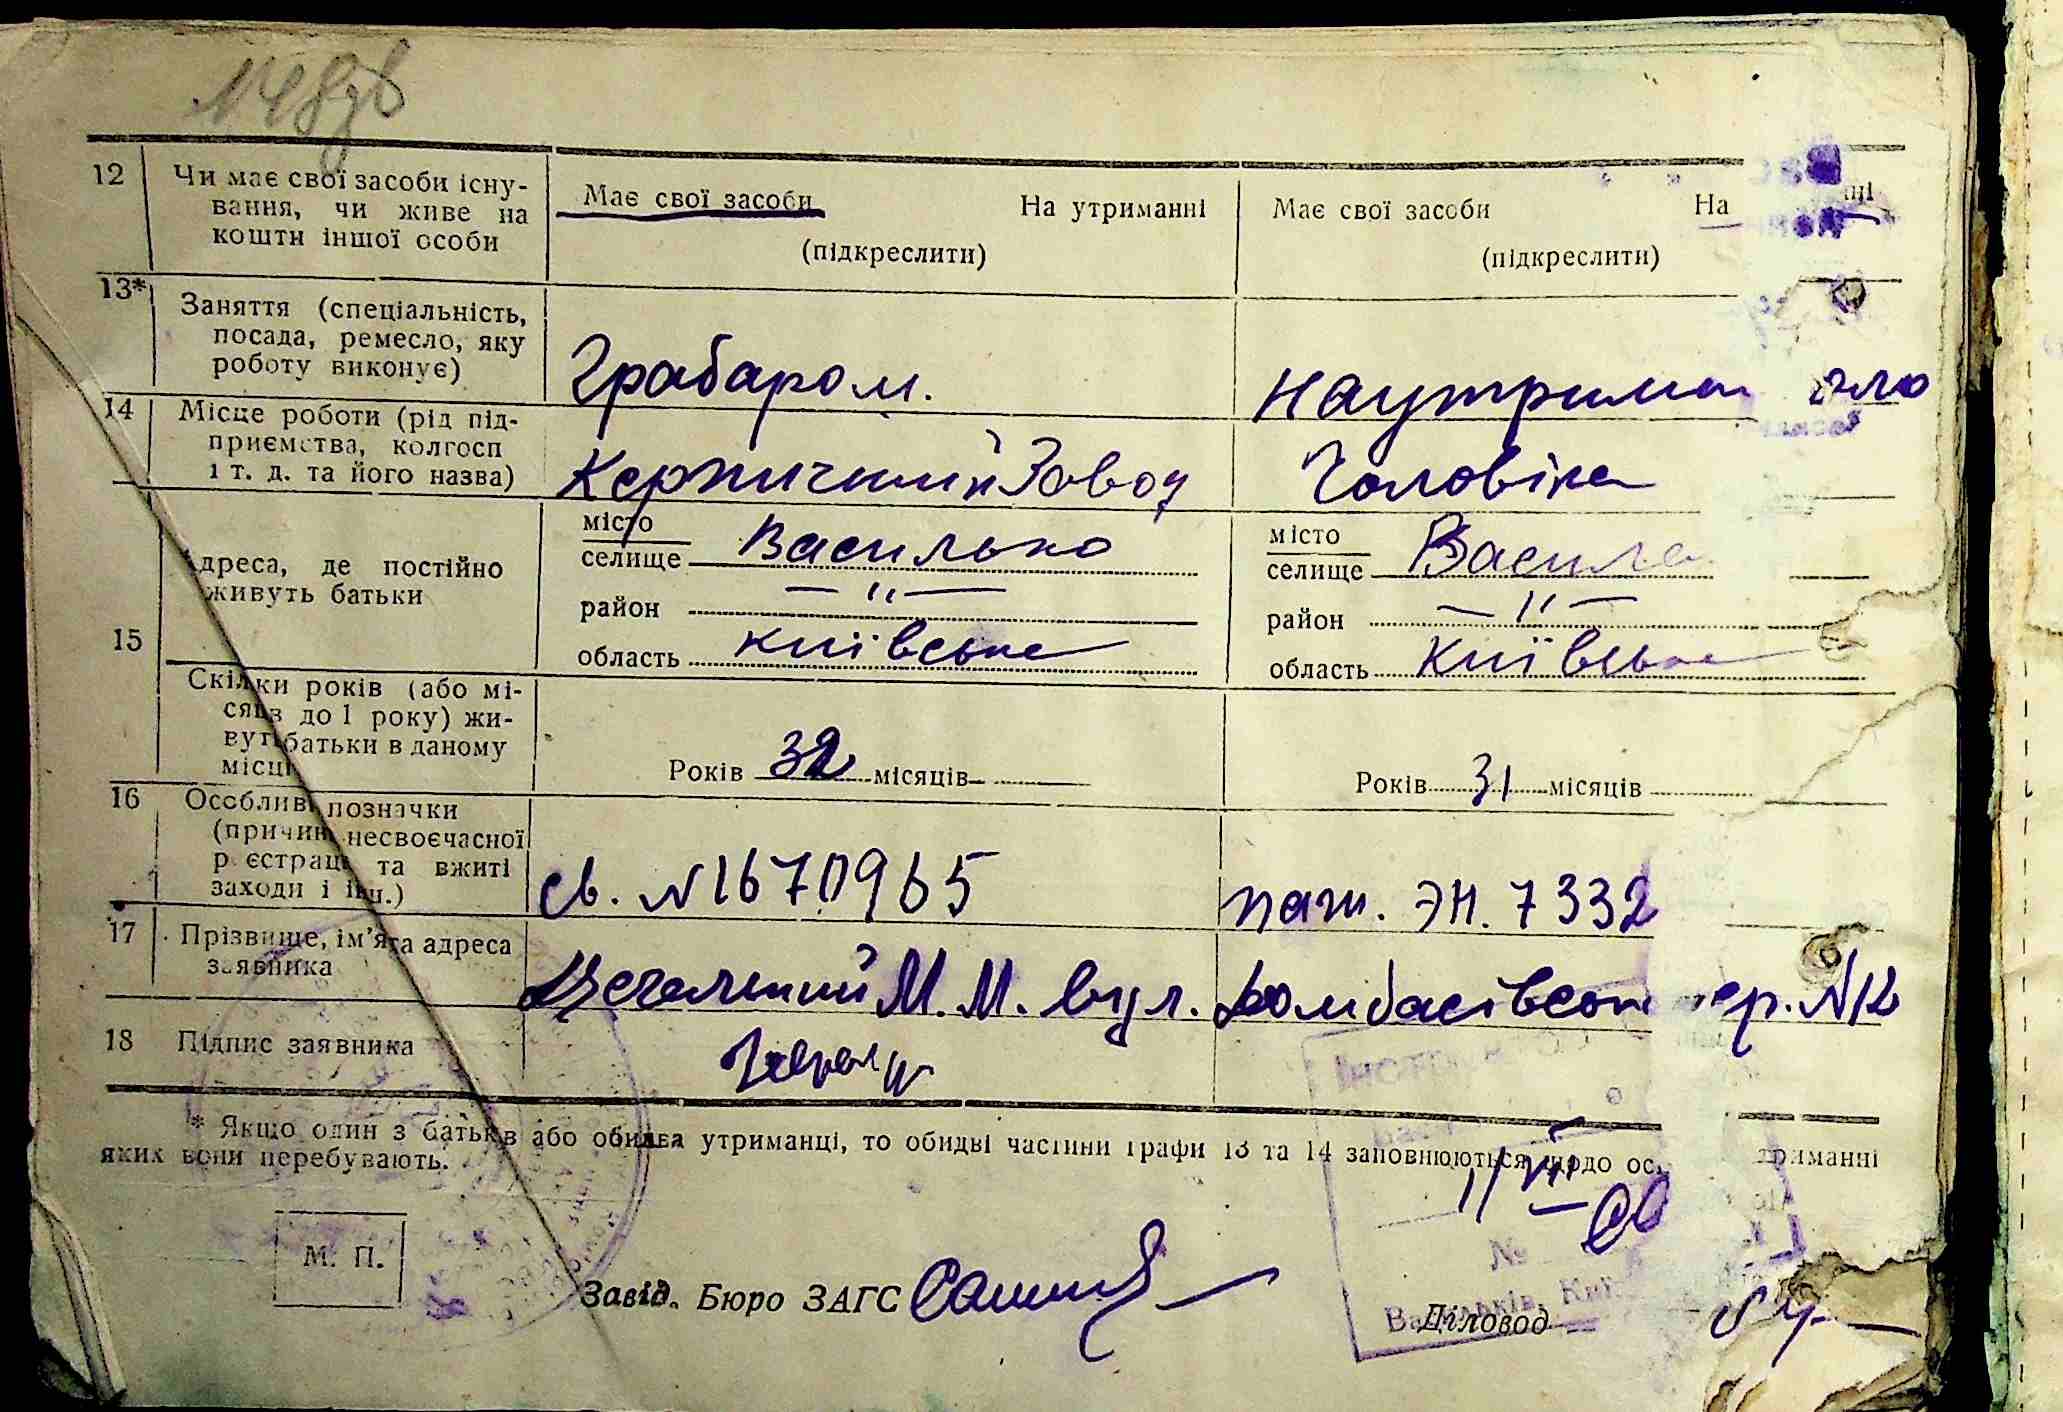 12 Чи має свої засоби існу-
вання, чи живе на
кошти іншої особи
Має свої засоби На утриманні
(підкреслити)
Має свої засоби На
(підкреслити)
13* Заняття (спеціальність,
посада, ремесло, яку
роботу виконує)
Грабаром.
14 Місце роботи (рід під-
приємства, колгосп
і т. д. та його назва)
Керпичний Завод
Чоловіка
15 Адреса, де постійно
живуть батьки
місто
селище Василько
район — 〃 —
область київське
місто
селище
район — 〃 —
область київське
Скільки років (або мі-
сяців до 1 року) жи-
вуть батьки в даному
місці
Років 32 місяців
Років 31 місяців
16 Особливі позначки
(причини несвоєчасної
реєстрації та вжиті
заходи і інш.)
св. №1670965
пасп. ЭН. 7332
17 Прізвище, ім'я та адреса
заявника
М. М. вул. пер. №12
18 Підпис заявника
* Якщо один з батьків або обидва утриманці, то обидві частини графи 13 та 14 заповнюються щодо
яких вони перебувають.
М. П.
Завід. Бюро ЗАГС
11/VII — 60
№
Діловод